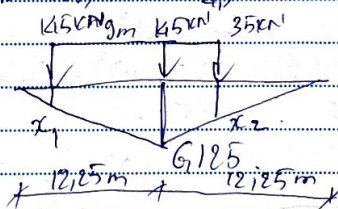 145KN 9m 145KN 35KN
x1 x2
G125
12,25m 12,25m